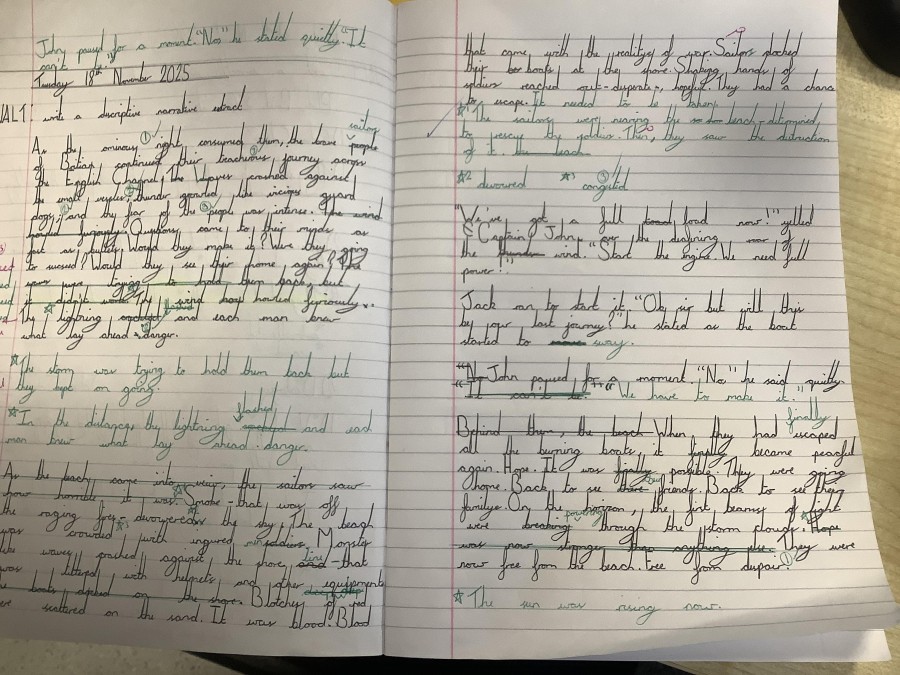 John paused for a moment. "No" he stated quietly. "It
can't be."
Tuesday 18th November 2025
WAL: write a discriptive narrative extract
sailing
As the ominous night consumed them, the brave people
of Britian continued their treacherous journey across
the English Channel. The waves crashed against
the small vessles; thunder growled, like vicious guard
dogs; and the fear of the people was intense. The wind
howled furiously. Questions came to their minds as
fast as bullets. Would they make it? Were they going
to succeed? Would they see their home again? The
storm was trying to hold them back, but
it didn't work. The wind howled furiously.
flashed
The lightning and each man knew
what lay ahead: danger.
The storm was trying to hold them back but
they kept on going.
flashed
In the distance, the lightning and each
man knew what lay ahead: danger.
As the beach came into view, the sailors saw
how horrible it was. Smoke - that was off
the raging fires - devowered the sky; The beach
was crowded with ingured soldiers. Monster
like waves pushed against the shore, and - that
was littered with helmets and other equipments
the boats docked on the shore. Blotches of red
were scattered on the sand. It was blood. Blood
that came with the realitys of war. Sailors docked
their boats at the shore. Shaking hands of
soldiers reached out - desperate, hopeful. They had a chance
to escape. It needed to be taken.
The sailors were nearing the beach - determined,
to rescue the soldiers. Then, they saw the distruction
of it. the beach
*2 devoured *3 congested
"We've got a full load now!" yelled
Captain John, over the deafining of
the wind. "Start the engine. We need full
power!"
Jack ran to start it. "Ok sir but will this
be our last journey?" he stated as the boat
started to sway.
"N John paused for a moment. "No" he said quietly.
"It can't be. "We have to make it."
finally
Behind them, the beach When they had escaped
all the burning boats, it finally became peaceful
again. Hope. It was finally possible. They were going
home. Back to see their friends. Back to see their
familys. On the horizon, the first beams of light
were breaking through the storm clouds. Hope
was now stronger than anything else. They were
now free from the beach. Free from dispair.
The sun was rising now.